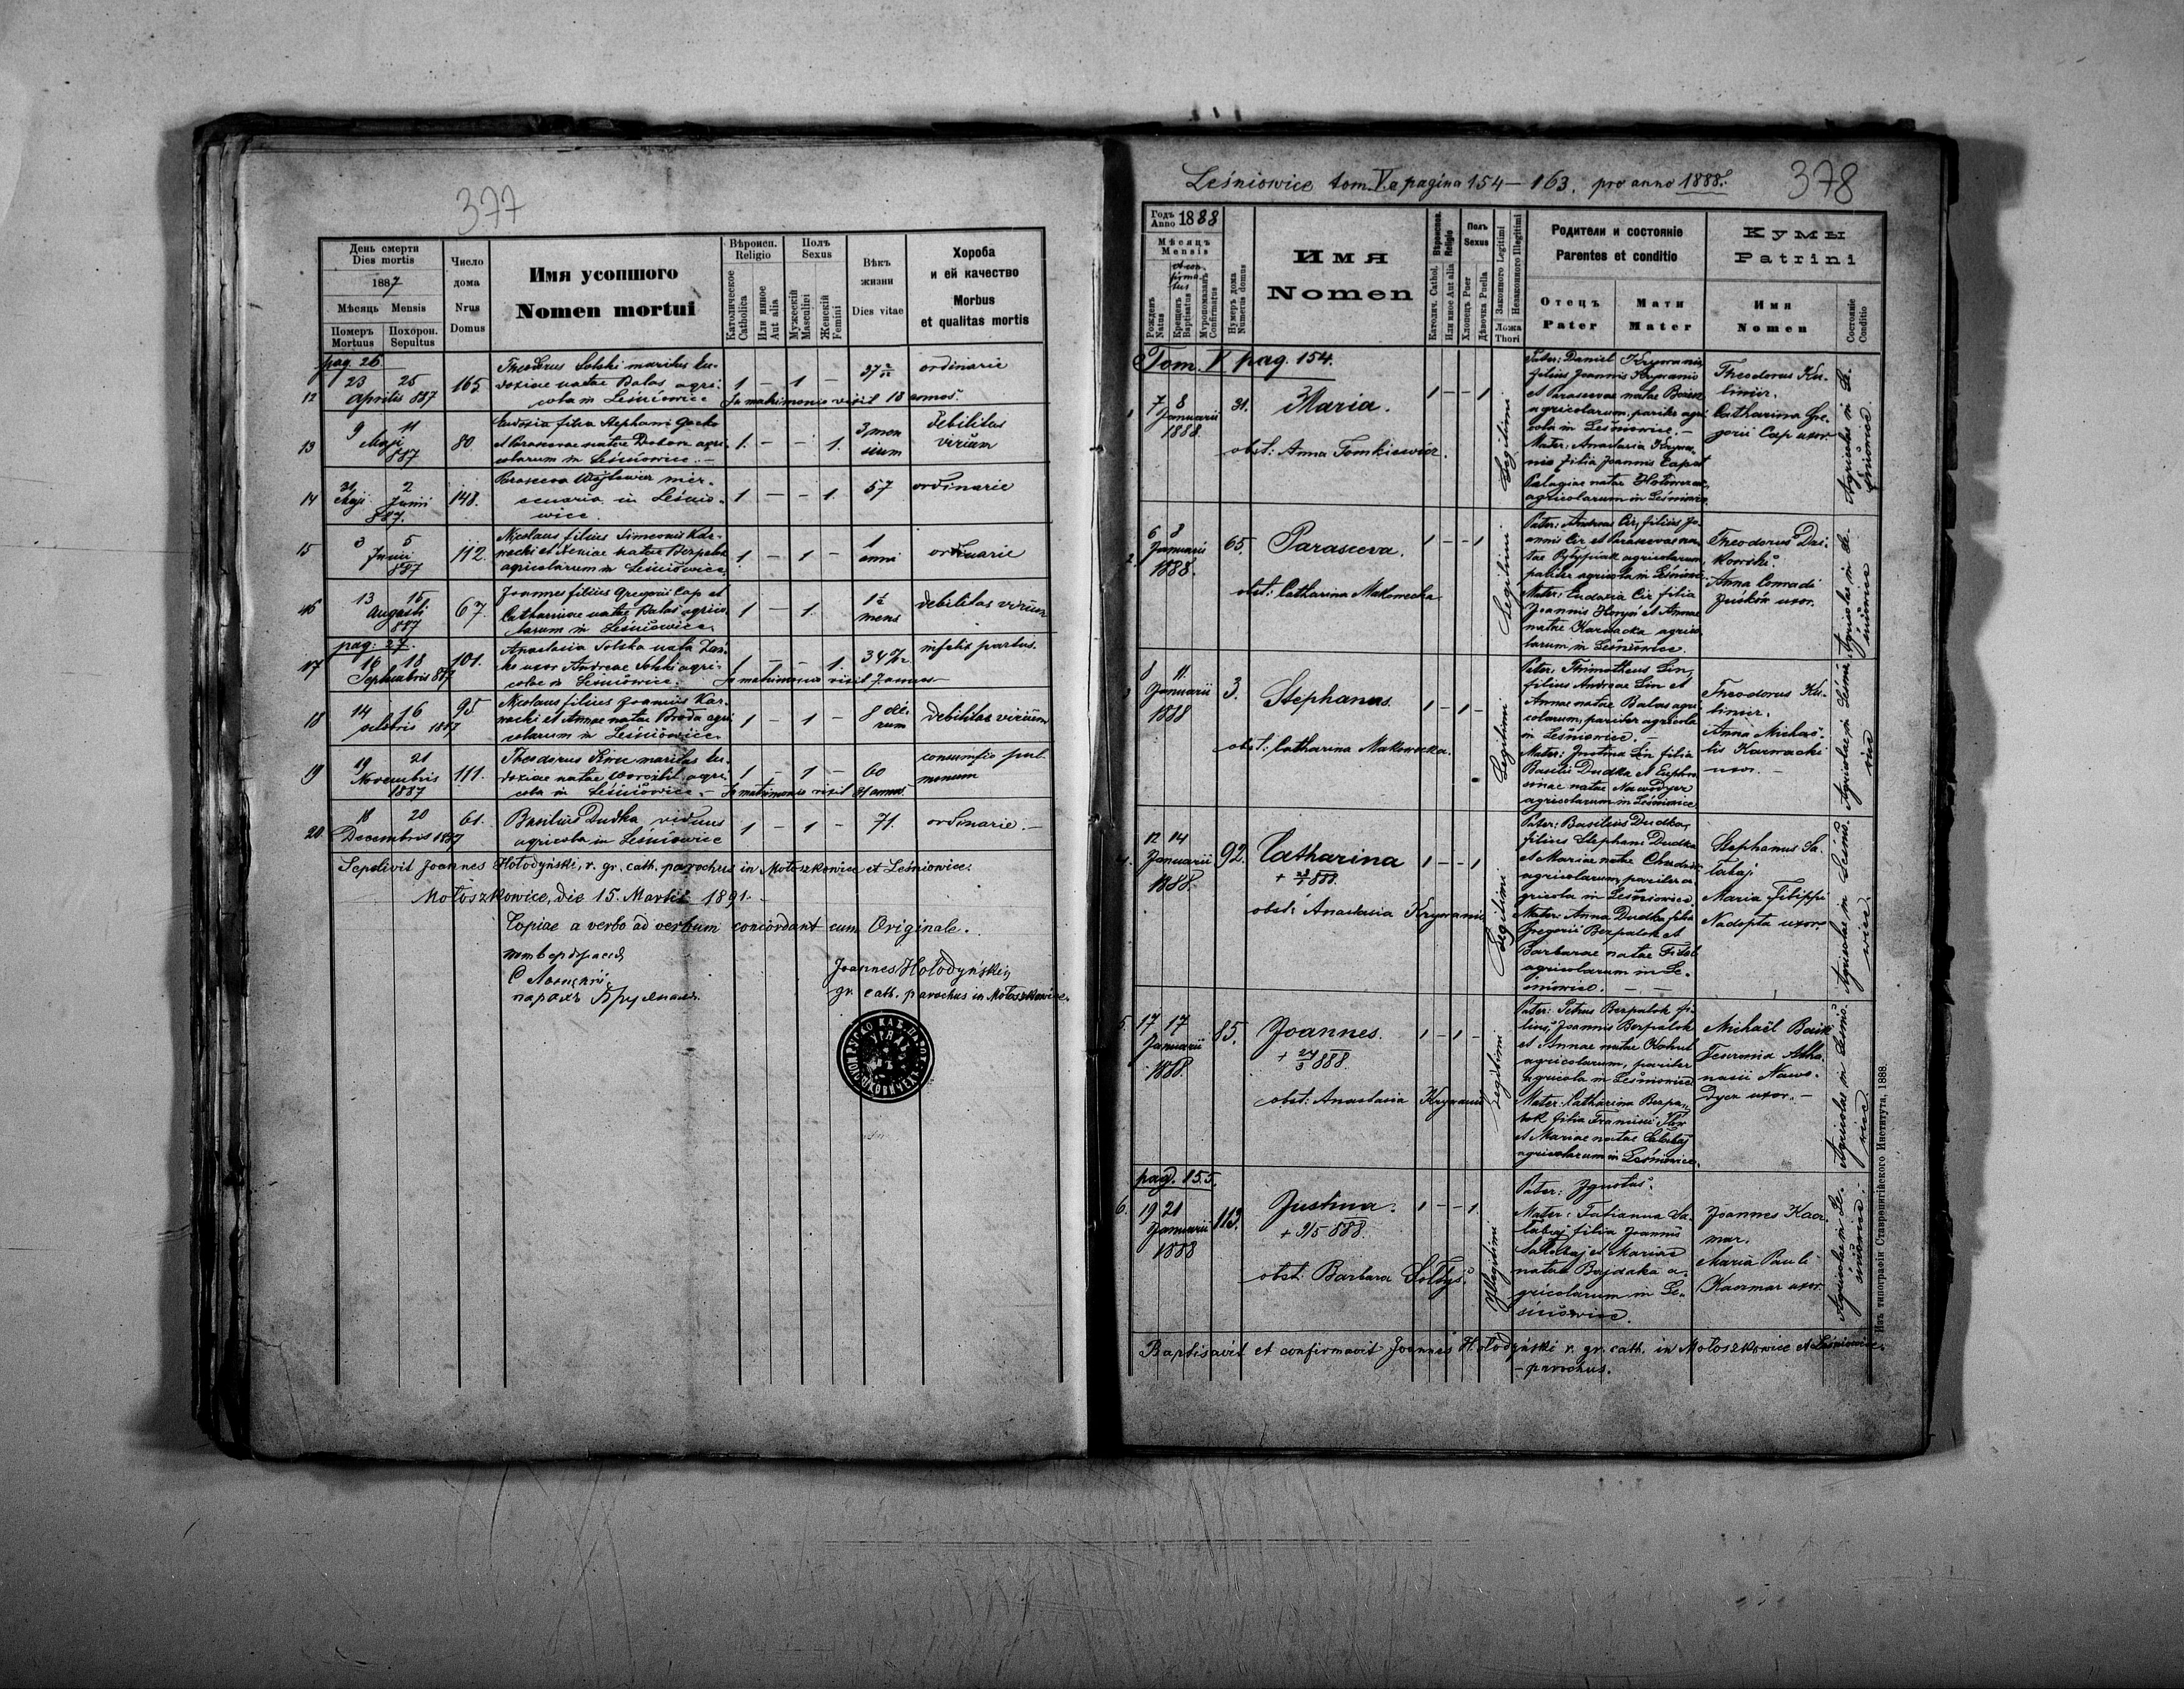 377
День смерти
Dies mortis
1887
Мѣсяць Mensis
Померъ
Mortuus
Похорон.
Sepultus
Число
дома
Nrus
Domus
Имя усопшого
Nomen mortui
Вѣроисп.
Religio
Католическое
Catholica
Или инное
Aut alia
Полъ
Sexus
Мужескій
Masculini
Женскій
Femini
Вѣкъ
жизни
Dies vitae
Хороба
и ей качество
Morbus
et qualitas mortis
pag. 26
12
23 25
Aprilis 887
165
Theodorus Solski maritus Eu-
doxiae natae Balas agri-
cola in Leśniowice
1 — 1 —
In matrimonio vixit 18 annos.
ordinarie
13
9 11
Maji
887
80
Eudoxia filia Stephani
et Parascevae natae agri-
colarum in Leśniowice.—
1. — — 1.
3 men
sium
debilitas
virium
14
31 2
Maji Junii
887.
148.
Parasceva Wojtowicz mer-
cenaria in Leśnio-
wice.
1 — — 1
57
ordinarie
15
3 5
Junii
887
112.
Nicolaus filius Simeonis Kar-
wacki et natae Bezpalok
agricolarum in Leśniowice.
1 — 1 —
1
anni
ordinarie
16
13 15
Augusti
887
67.
Joannes filius Gregorii Cap et
Catharinae natae Balas agrico-
larum in Leśniowice.
1 — 1.
1½
mens
debilitas virium
pag: 27.
17
16 18
Septembris 887
101.
Anastasia Solska nata
uxor Andreae Solski agri-
colae in Leśniowice.
1 — — 1.
In matrimonio vixit 7 annos
infelix partus.
18
14 16
octobris 1887
95
Nicolaus filius Joannis Kar-
wacki et Annae natae Broda agri-
colarum in Leśniowice.
1 — 1 —
8 die-
rum
debilitas virium
19
19 21
Novembris
1887
111.
Theodorus maritus Eu-
doxiae natae Worobel agri-
cola in Leśniowice.—
1 — 1 —
In matrimonio vixit 31 annos.
60
consumtio pul-
monum
20.
18 20
Decembris 1887
61.
Basilius Dudka viduus
agricola in Leśniowice
1 — 1 —
71.
ordinarie.—
Sepelivit Joannes Hołodyński, r. gr. cath. parochus in Mołoszkowice et Leśniowice.
Mołoszkowice, die 15. Martii 1891.
Copiae a verbo ad verbum concordant cum Originale.
Joannes Hołodyński,
gr. cath. parochus in Mołoszkowice.
Leśniowice tom. V. a pagina 154 — 163. pro anno 1888.
378
Годъ
Anno 1888
Мѣсяцъ
Mensis
et con-
firma-
tus
Рожденъ
Natus
Крещенъ
Baptisatus
Муропомазанъ
Confirmatus
Нумеръ дома
Numerus domus
Имя
Nomen
Вѣроиспов.
Religio
Католич. Cathol.
Или иное Aut alia
Полъ
Sexus
Хлопецъ Puer
Дѣвочка Puella
Законного Legitimi
Незаконного Illegitimi
Ложа
Thori
Родители и состояніе
Parentes et conditio
Отецъ
Pater
Мати
Mater
Кумы
Patrini
Имя
Nomen
Состояніе
Conditio
Tom. V pag. 154.
1
7 8
Januarii
1888.
31.
Maria.
obst: Anna Tomkiewicz.
1 — — 1
Legitimi
Pater: Daniel Krywanio,
filius Joannis Krywanio
et Parascevae natae
agricolarum, pariter agri-
cola in Leśniowice.—
Mater: Anastasia Krywa-
nio filia Joannis Cap et
Palagiae natae
agricolarum in Leśniowice.
Theodorus Ku-
limir.
Catharina Gre-
gorii Cap uxor.
Agricolae in Le-
śniowice.
2.
6 8
Januarii
1888.
65.
Parasceva.
obst: Catharina Makowecka
1 — — 1
Legitimi
Pater: Andreas Cir, filius Jo-
annis Cir et Parascevae na-
tae Pyłypiak agricolarum,
pariter agricola in Leśniowice
Mater: Eudoxia Cir filia
Joannis Horyń et Annae
natae Karwacka agrico-
larum in Leśniowice.
Theodorus Dzi-
kowski.
Anna Conradi
uxor.
Agricolae in Le-
śniowice
3
8 11.
Januarii
1888
3.
Stephanus.
obst: Catharina Makowecka.
1 — 1 —
Legitimi
Pater: Thimotheus Lin,
filius Andreae Lin et
Annae natae Balas agri-
colarum, pariter agricola
in Leśniowice.—
Mater: Justina Lin filia
Basilii Dudka et Euphro-
sinae natae Nawodyer
agricolarum in Leśniowice
Theodorus Ku-
limir.
Anna Michaë-
lis Karwacki
uxor.—
Agricolae in Leśnio-
wice
4.
12 14
Januarii
1888.
92.
Catharina
obst: Anastasia Krywanio
1 — — 1
Legitimi
Pater: Basilius Dudka,
filius Stephani Dudka
et Mariae natae
agricolarum, pariter a-
gricola in Leśniowice.
Mater: Anna Dudka filia
Gregorii Bezpalok et
Barbarae natae Fitel
agricolarum in Le-
śniowice. — —
Stephanus Sa-
łabaj.
Maria Filippi
Nadopta uxor.
Agricolae in Leśnio-
wice.
5.
17 17
Januarii
1888.
85.
Joannes.
+ 24/3 888.
obst: Anastasia Krywanio
1 — 1 —
Legitimi
Pater: Petrus Bezpalok fi-
lius Joannis Bezpalok
et Annae natae Kohut
agricolarum, pariter
agricola in Leśniowice
Mater: Catharina Bezpa-
lok filia Francisci
et Mariae natae Sałabaj
agricolarum in Leśniowice.
Michaël
Atha-
nasii Nawo-
dyer uxor.—
Agricolae in Leśnio-
wice.
pag. 155.
6.
19 21
Januarii
1888
113.
Justina.
+ 21/5 888.
obst: Barbara Sołtys.
1 — — 1.
Illegitimi
Pater: Ignotus.
Mater: Tatianna Sa-
łabaj filia Joannis
Sałabaj et Mariae
natae Bajdaka a-
gricolarum in Le-
śniowice.
Joannes Kacz-
mar.
Maria Pauli
Kaczmar uxor.
Agricolae in Le-
śniowice.—
Baptisavit et confirmavit Joannes Hołodyński r. gr. cath. in Mołoszkowice et Leśniowice.
— parochus.
Изъ типографіи Ставропигійского Института, 1888.